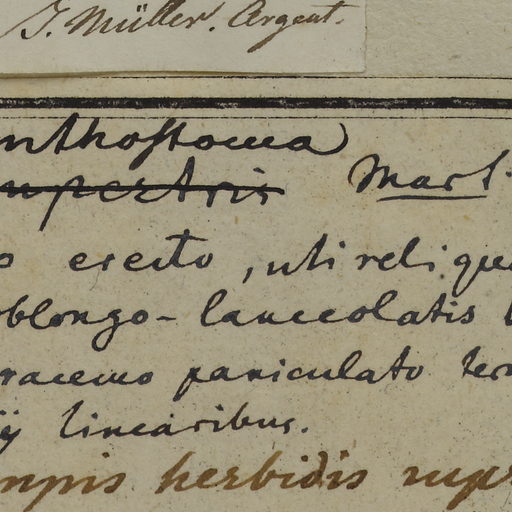 J. Müller. Argent.
nthostoma
mpestris Mart.
o erecto, uti relique
oblongo-lanceolatis
racemo paniculato ter
ij linearibus.
mpis herbidis